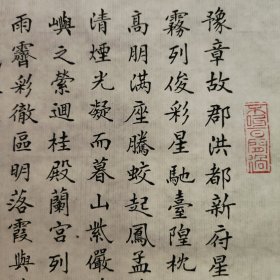 豫章故郡洪都新府星
霧列俊彩星馳臺隍枕
高朋滿座騰蛟起鳳孟
清煙光凝而暮山紫儼
嶼之縈迴桂殿蘭宮列
雨霽彩徹區明落霞與